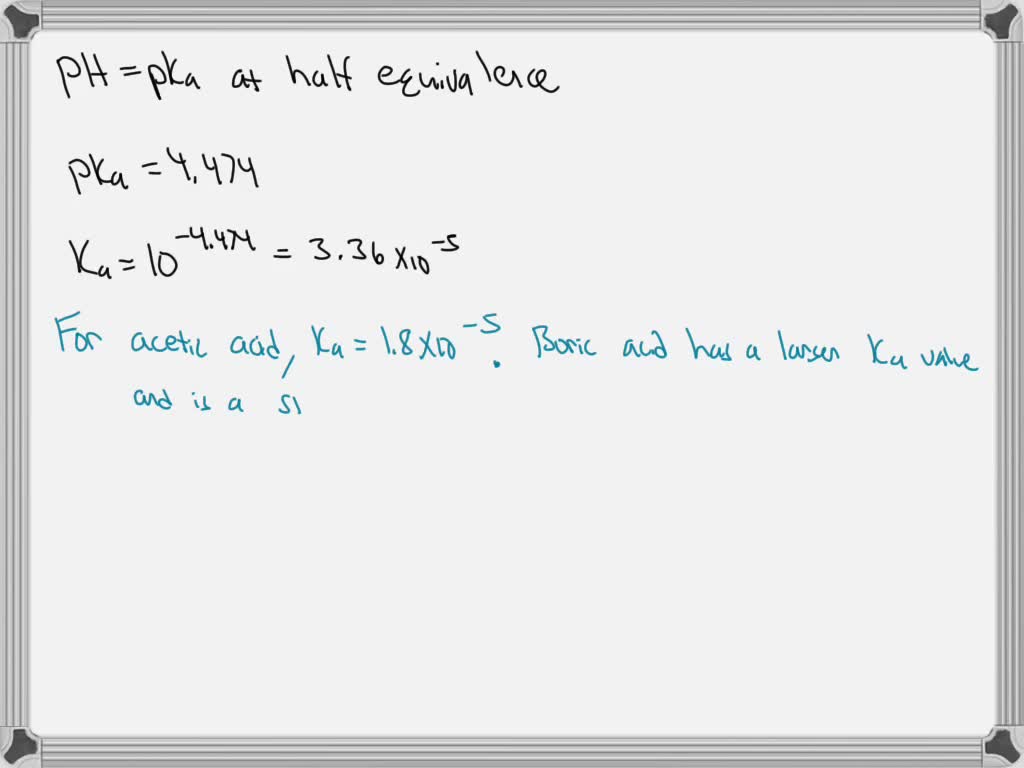 pH = pKa at half equivalence
pKa = 4.474
Ka = 10^-4.474 = 3.36 x 10^-5
For acetic acid, Ka = 1.8 x 10^-5. Boric acid has a larger Ka value
and is a sl